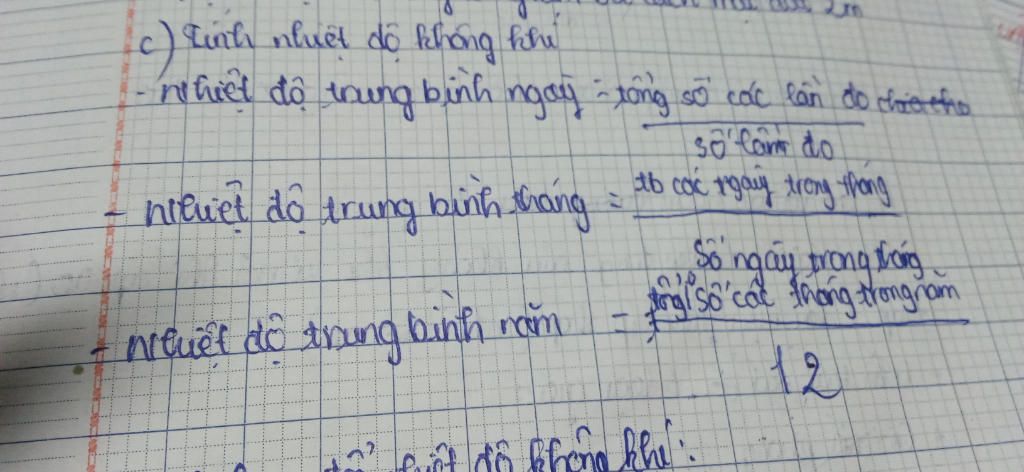 2m
c) Tính nhiệt độ không khí
- nhiệt độ trung bình ngày = tổng số các lần đo
số lần đo
- nhiệt độ trung bình tháng = tb các ngày trong tháng
số ngày trong tháng
- nhiệt độ trung bình năm = tổng số các tháng trong năm
12
độ không khí: